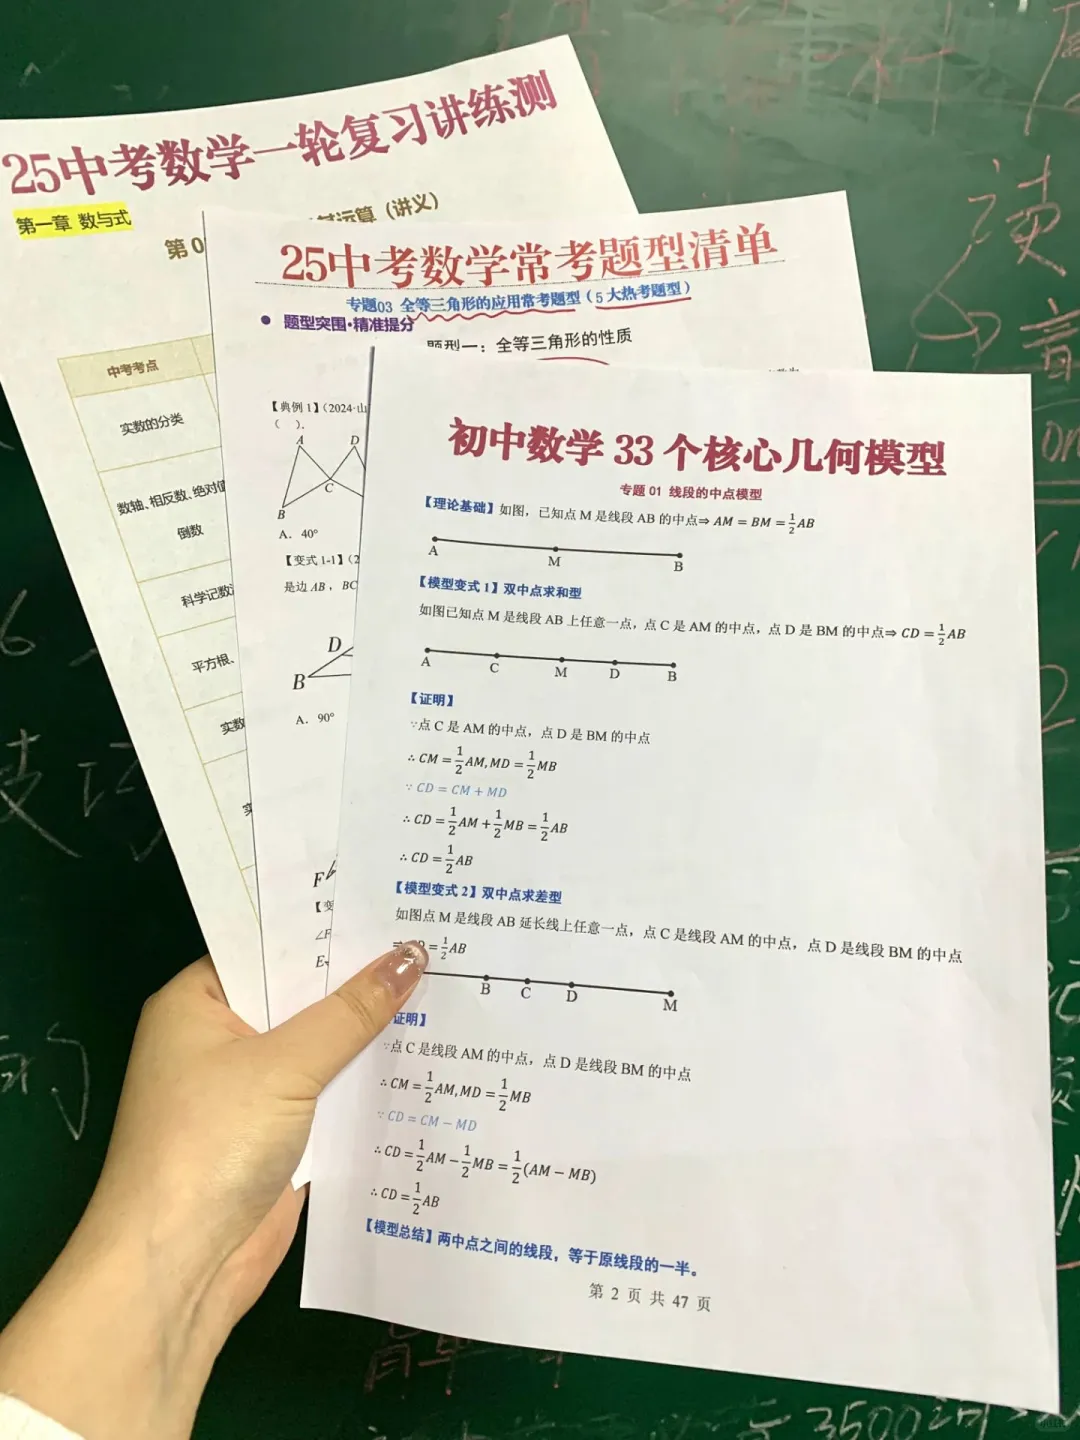 25中考数学一轮复习讲练测
第一章 数与式
第0
其运算（讲义）
中考考点
实数的分类
数轴、相反数、绝对值
倒数
科学记数
平方根、
实数
25中考数学常考题型清单
专题03 全等三角形的应用常考题型（5大热考题型）
题型突围·精准提分
题型一：全等三角形的性质
【典例1】（2024·山
（ ）.
A D
C
B
A. 40°
【变式1-1】（2
是边 AB，BC
D
B
A. 90°
F
【变
∠F
E
初中数学 33 个核心几何模型
专题 01 线段的中点模型
【理论基础】如图，已知点 M 是线段 AB 的中点⇒ AM = BM = 1/2 AB
A M B
【模型变式 1】双中点求和型
如图已知点 M 是线段 AB 上任意一点，点 C 是 AM 的中点，点 D 是 BM 的中点⇒ CD = 1/2 AB
A C M D B
【证明】
∵点 C 是 AM 的中点，点 D 是 BM 的中点
∴ CM = 1/2 AM, MD = 1/2 MB
∵ CD = CM + MD
∴ CD = 1/2 AM + 1/2 MB = 1/2 AB
∴ CD = 1/2 AB
【模型变式 2】双中点求差型
如图点 M 是线段 AB 延长线上任意一点，点 C 是线段 AM 的中点，点 D 是线段 BM 的中点
= 1/2 AB
B C D M
证明】
∵点 C 是线段 AM 的中点，点 D 是线段 BM 的中点
∴ CM = 1/2 AM, MD = 1/2 MB
∵ CD = CM − MD
∴ CD = 1/2 AM − 1/2 MB = 1/2 (AM − MB)
∴ CD = 1/2 AB
【模型总结】两中点之间的线段，等于原线段的一半。
第 2 页 共 47 页
读
音
6
2
3500